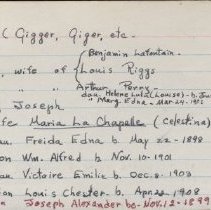 ( Gigger, Giger, etc.
Benjamin Lafontain.
, wife of { Louis Riggs
" Arthur Perry
dau. Helene Lula (Louise) - b. Ju
" Marg. Edna - Mar. 24 -
Joseph
fe Maria La Chapelle (Celestina)
au. Freida Edna b. May 22 - 1898
on Wm. Alfred b. Nov. 10 - 1901
au. Victoire Emilie b. Dec. 8 - 1903
on Louis Chester - b. Apr. 22 - 1908
n Joseph Alexander b - Nov. 12 - 1899